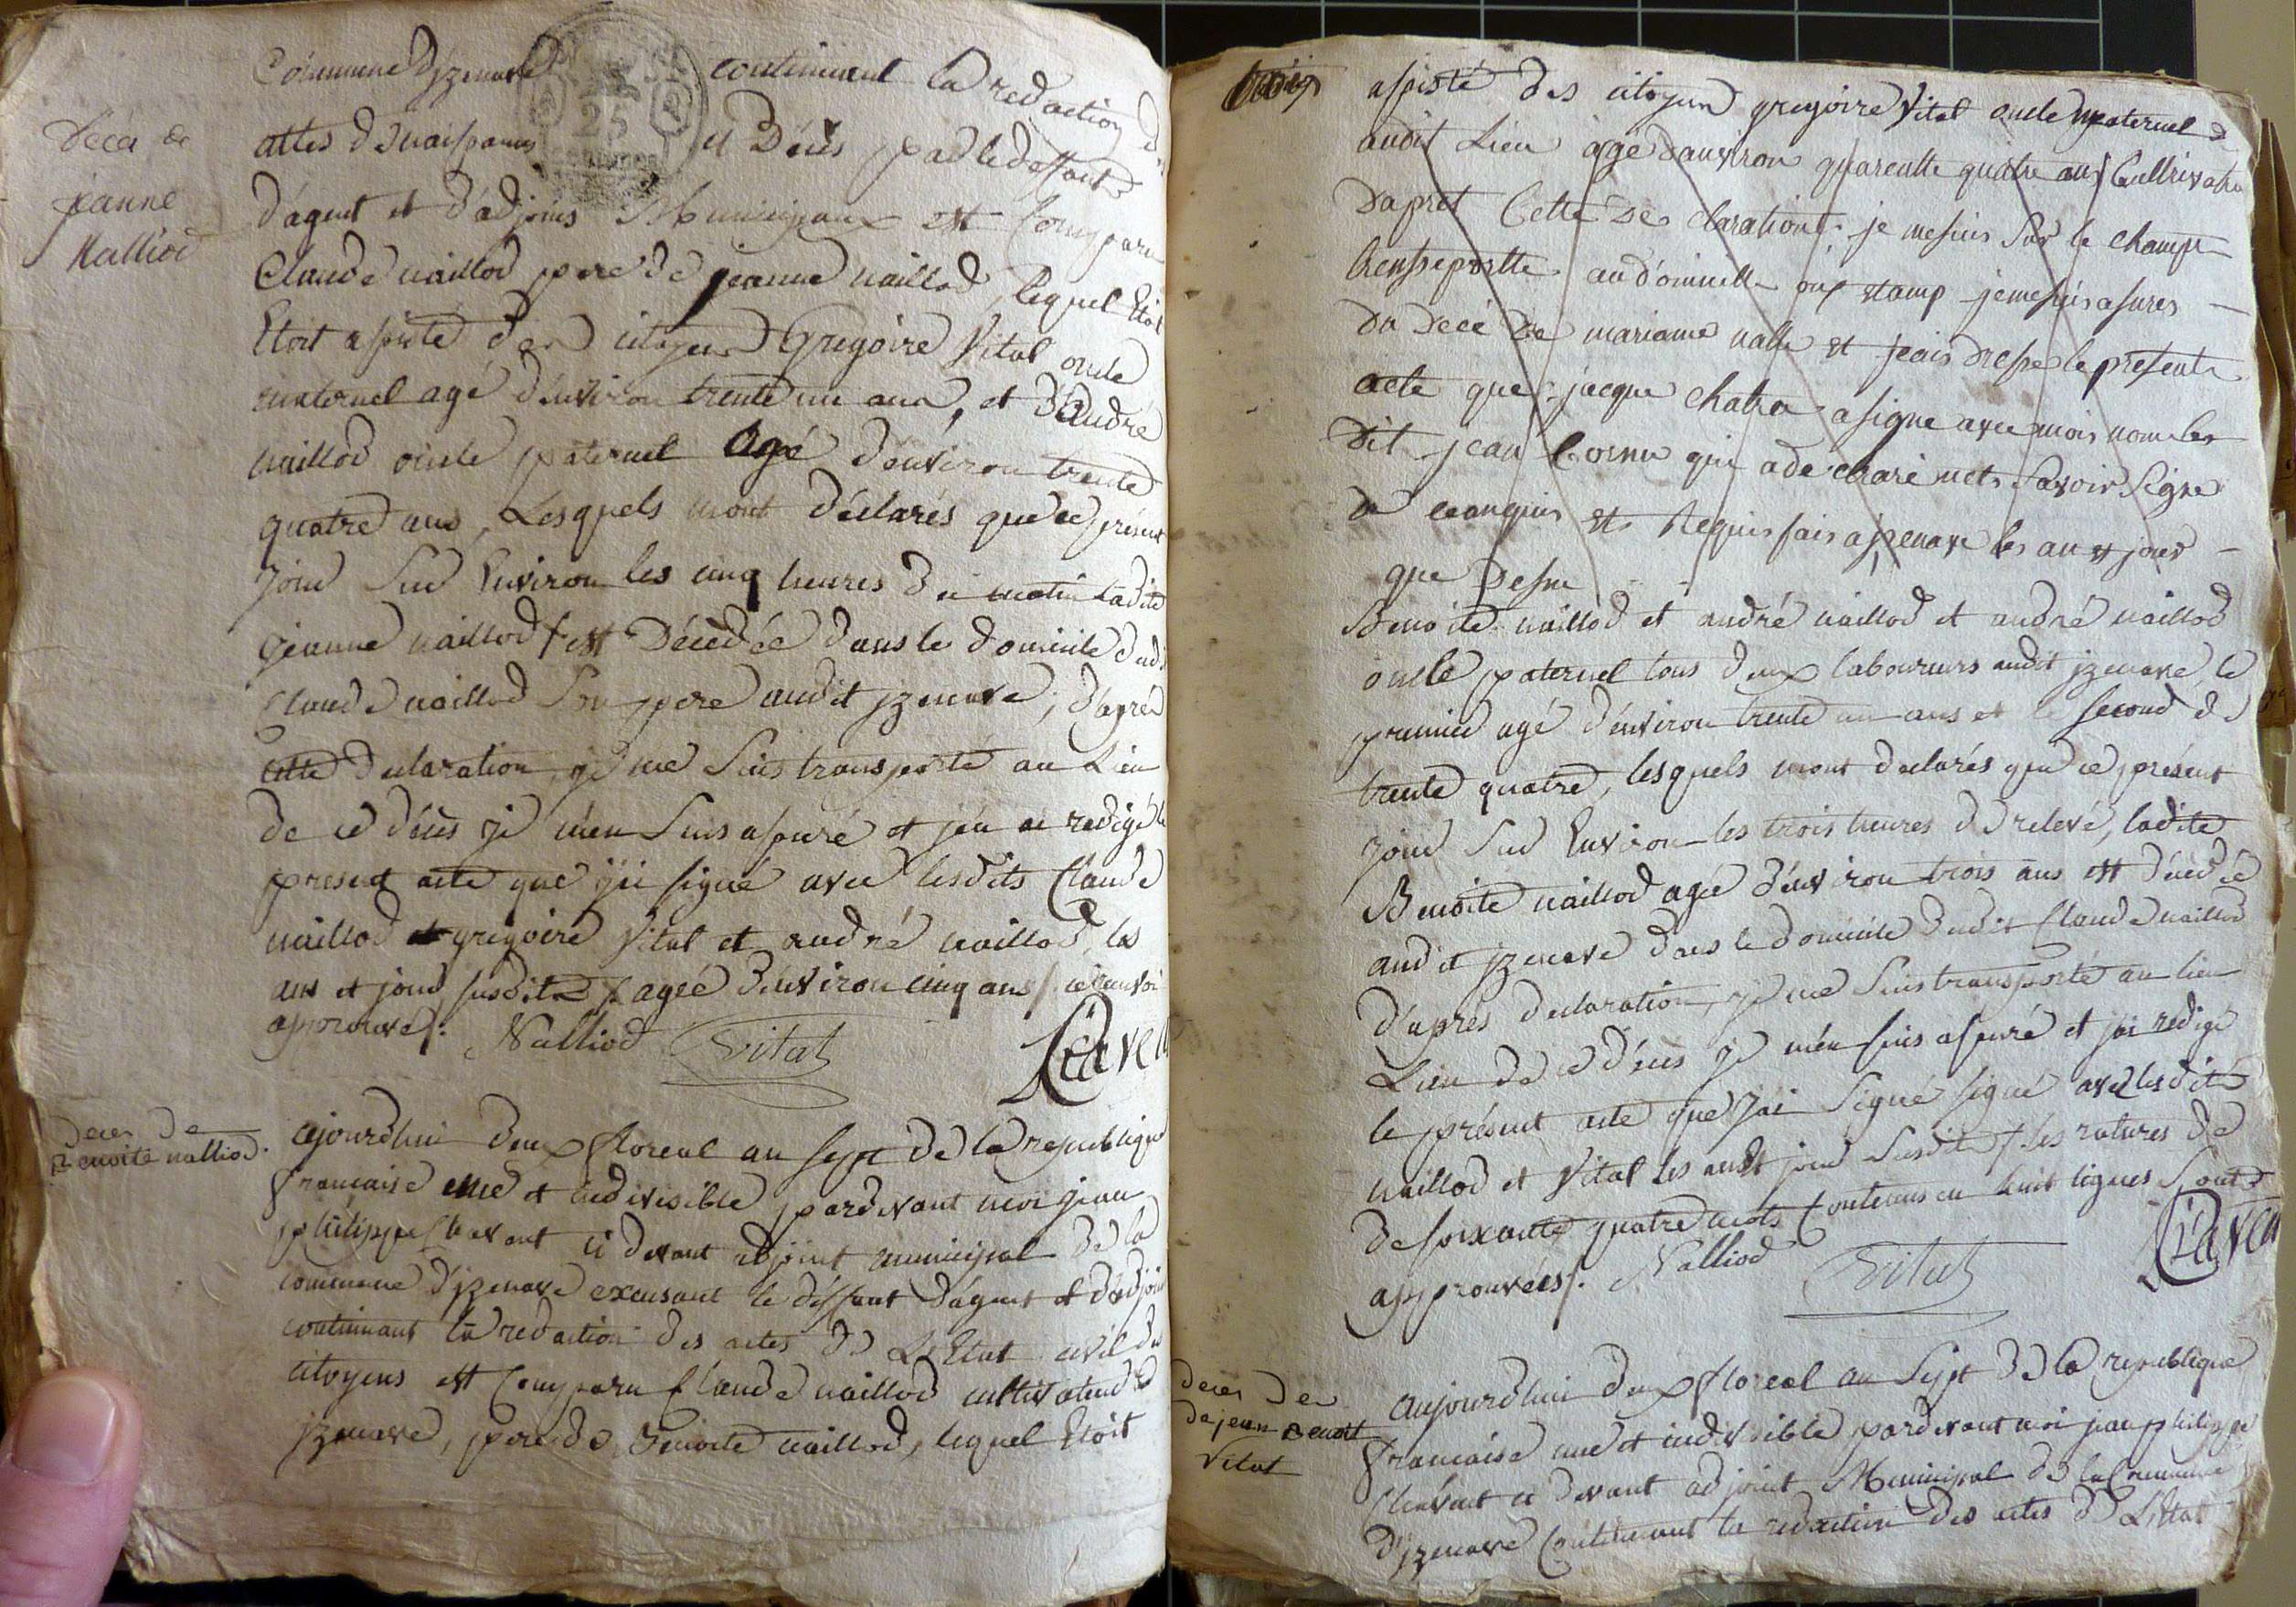 Commune d'jzenave continuent la redaction des
Décé de
jeanne
Nalliod
attes de naissances et Décès par le deffaut
d'agent et d'adjoins Municipaux est Comparu
Claude naillod pere de jeanne naillod, lequel Etoit
Etoit assisté des citoyens Gregoire Vital oncle
maternel agé d'environ trente un ans, et d'andré
naillod oncle paternel agé d'environ trente
quatre ans, Lesquels mont déclarés que ce présent
jour Sur Environ les cinq heures du matin ladite
jeanne naillod f est Décédée dans le domicile dudit
Claude naillod Son pere audit jzenave; d'après
cette declaration, je me Suis transporté au Lieu
de ce décès je m'en Suis assuré et j'en ai redigé le
present acte que j'ai signé avec lesdits Claude
naillod et gregoire Vital et andré naillod, les
ans et jour susdits f agée d'environ cinq ans f. le renvoi
approuvé f. Nalliod Vital Cravent
deces de
Benoite nalliod.
cejourd'hui deux floreal an sept de la republique
francaise une et indivisible, pardevant moi jean
philippe Chavent ci devant adjoint municipal de la
commune d'jzenave excusant le deffaut d'agent et d'adjoint
continuant la redaction des actes de L'Etat civil des
citoyens est Comparu Claude naillod cultivateur d
jzenave, pere de Benoite naillod, lequel Etoit
assisté des citoyens gregoire Vital oncle maternel d
audit Lieu agé danviron quarentte quatre ans Cultivateur
Daprest Cette De clarationt je mesuis Sur le champt
transseportte au dominelle oux stamp jemesuis asures
du Decé de marianne nalle et jeais dresse le presente
acte que jacque chatra a signe avec mois nom les
dit jean Cornu qui a de claré nets Savoir Signe
de ce anquis et Requis fais a jzenave les an et jour
que Desu
Benoite naillod et andré naillod et andré naillod
oncle paternel tous deux laboureurs audit jzenave, le
premier agé d'environ trente un ans et le second de
trente quatre, lesquels mont declarés que ce présent
jour Sur Environ les trois heures de relevé, ladite
Benoite naillod agée d'environ trois ans est décédée
audit jzenave dans le domicile dudit Claude naillod
d'après declaration, je me Suis transporté au lieu
Lieu de ce décès je m'en suis assuré et j'ai redigé
le présent acte que j'ai Signé signé avec lesdits
naillod et Vital les an et jour Susdits f les ratures de
de soixante quatre mots Contenus en huit lignes Sont
approuvées f. Nalliod Vital Cravent
deces de
de jean Benoit
Vital
aujourdhui deux floreal an Sept de la republique
francaise une et indivisible, pardevant moi jean philippe
Chavent ci devant adjoint Municipal de la Commune
d'jzenave Continuant la redaction des actes de L'Etat